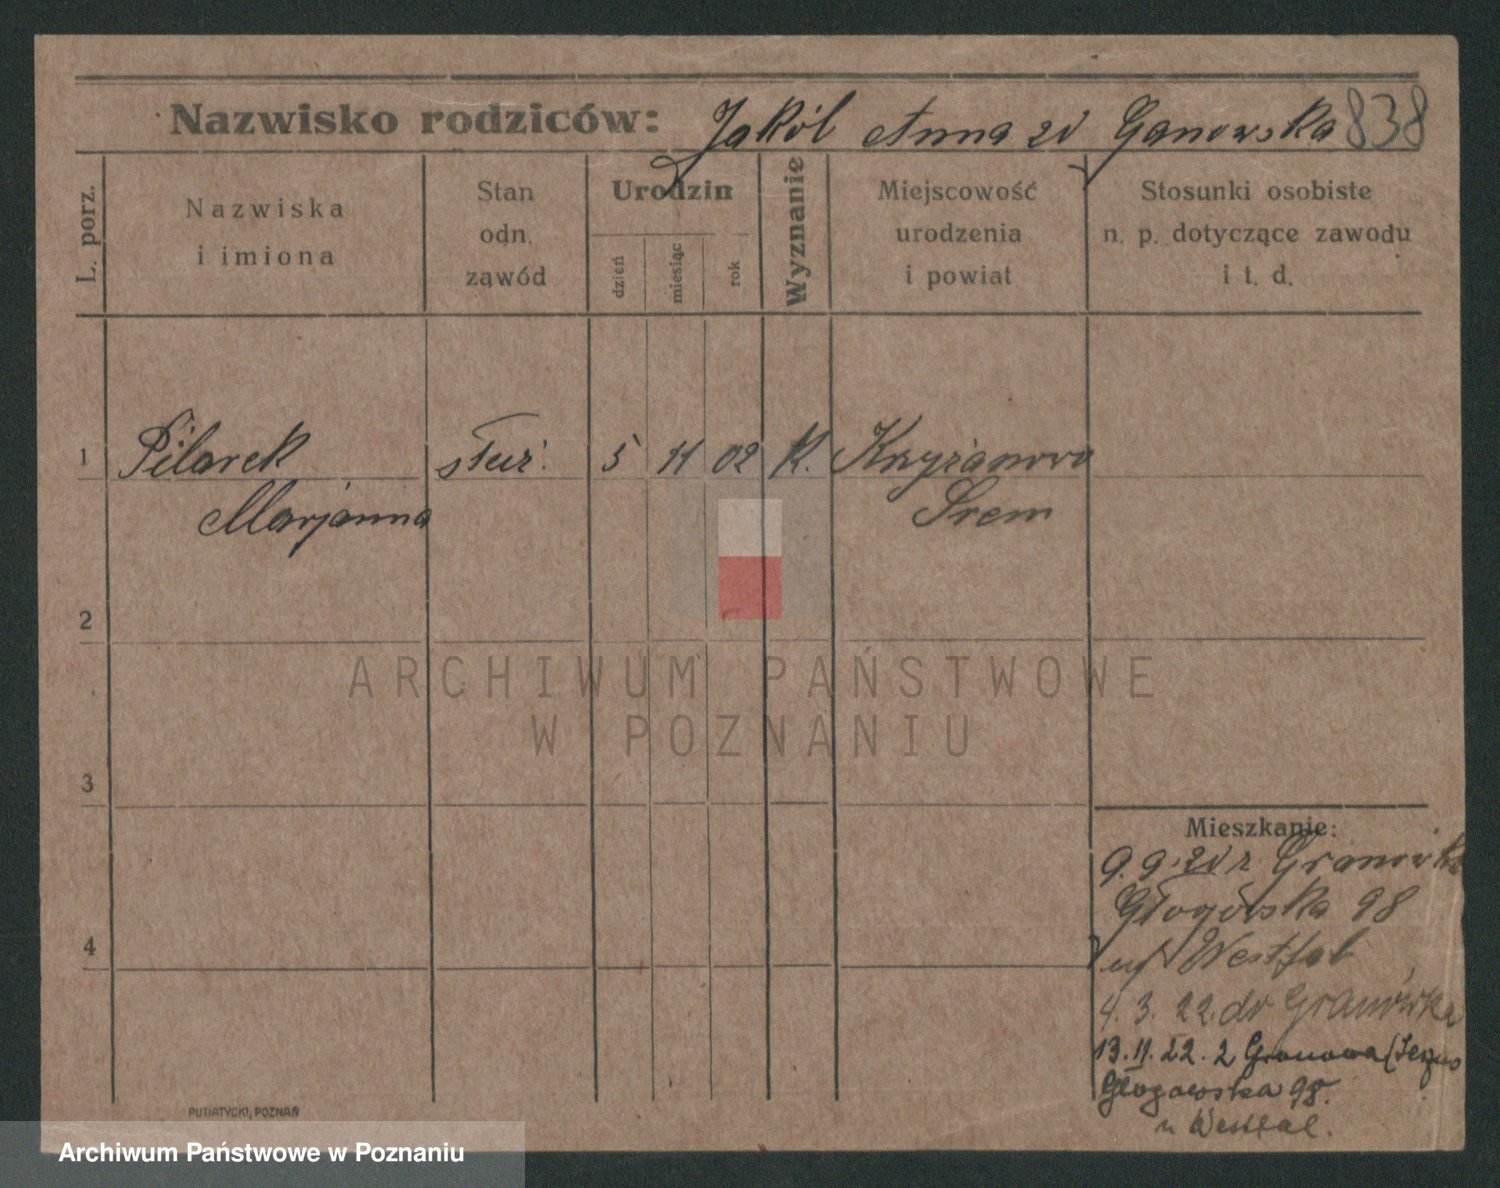 Nazwisko rodziców: Jakób Anna zd Ganowska 838
L. porz.
Nazwiska
i imiona
Stan
odn.
zawód
Urodzin
dzień
miesiąc
rok
Wyznanie
Miejscowość
urodzenia
i powiat
Stosunki osobiste
n. p. dotyczące zawodu
i t. d.
1 Pilarek służ. 5 11 02 K. Krzyżanowo
Marjanna Śrem
2
ARCHIWUM PAŃSTWOWE
W POZNANIU
3
Mieszkanie:
9. 9. z Granówka
Głogówska 98
4
u Westfal
4. 3. 22. do Granówka
13. 11. 22. z Granowa
Głogowska 98.
u Westfal.
PUTIATYCKI, POZNAŃ
Archiwum Państwowe w Poznaniu